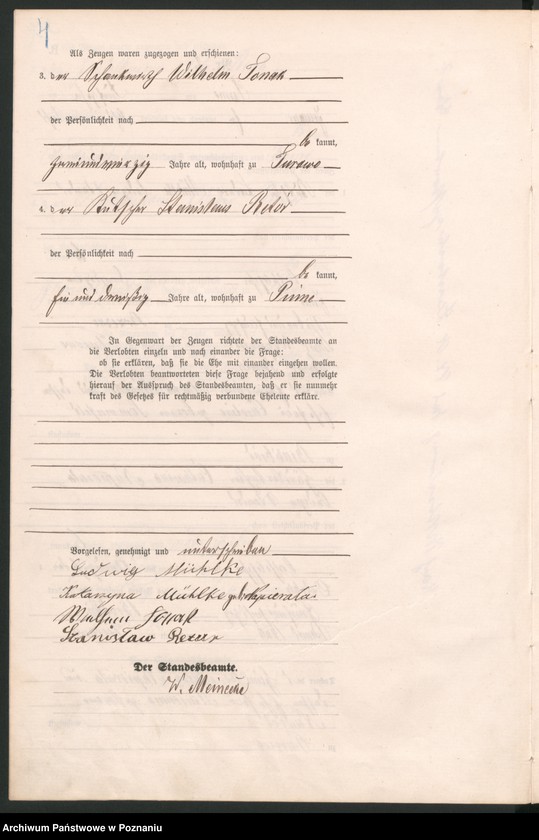 4
Als Zeugen waren zugezogen und erschienen:
3. der Schankwirth Wilhelm Tonak
der Persönlichkeit nach
be kannt,
zweiundvierzig Jahre alt, wohnhaft zu Turowo
4. der Kutscher Stanislaus
der Persönlichkeit nach
be kannt,
und dreißig Jahre alt, wohnhaft zu Pinne
In Gegenwart der Zeugen richtete der Standesbeamte an
die Verlobten einzeln und nach einander die Frage:
ob sie erklären, daß sie die Ehe mit einander eingehen wollen.
Die Verlobten beantworteten diese Frage bejahend und erfolgte
hierauf der Ausspruch des Standesbeamten, daß er sie nunmehr
kraft des Gesetzes für rechtmäßig verbundene Eheleute erkläre.
Vorgelesen, genehmigt und unterschrieben
Ludwig Mühlke
Katarzyna Mühlke geb.
Wilhelm Tonak
Stanisław
Der Standesbeamte.
W. Meinecke
Archiwum Państwowe w Poznaniu